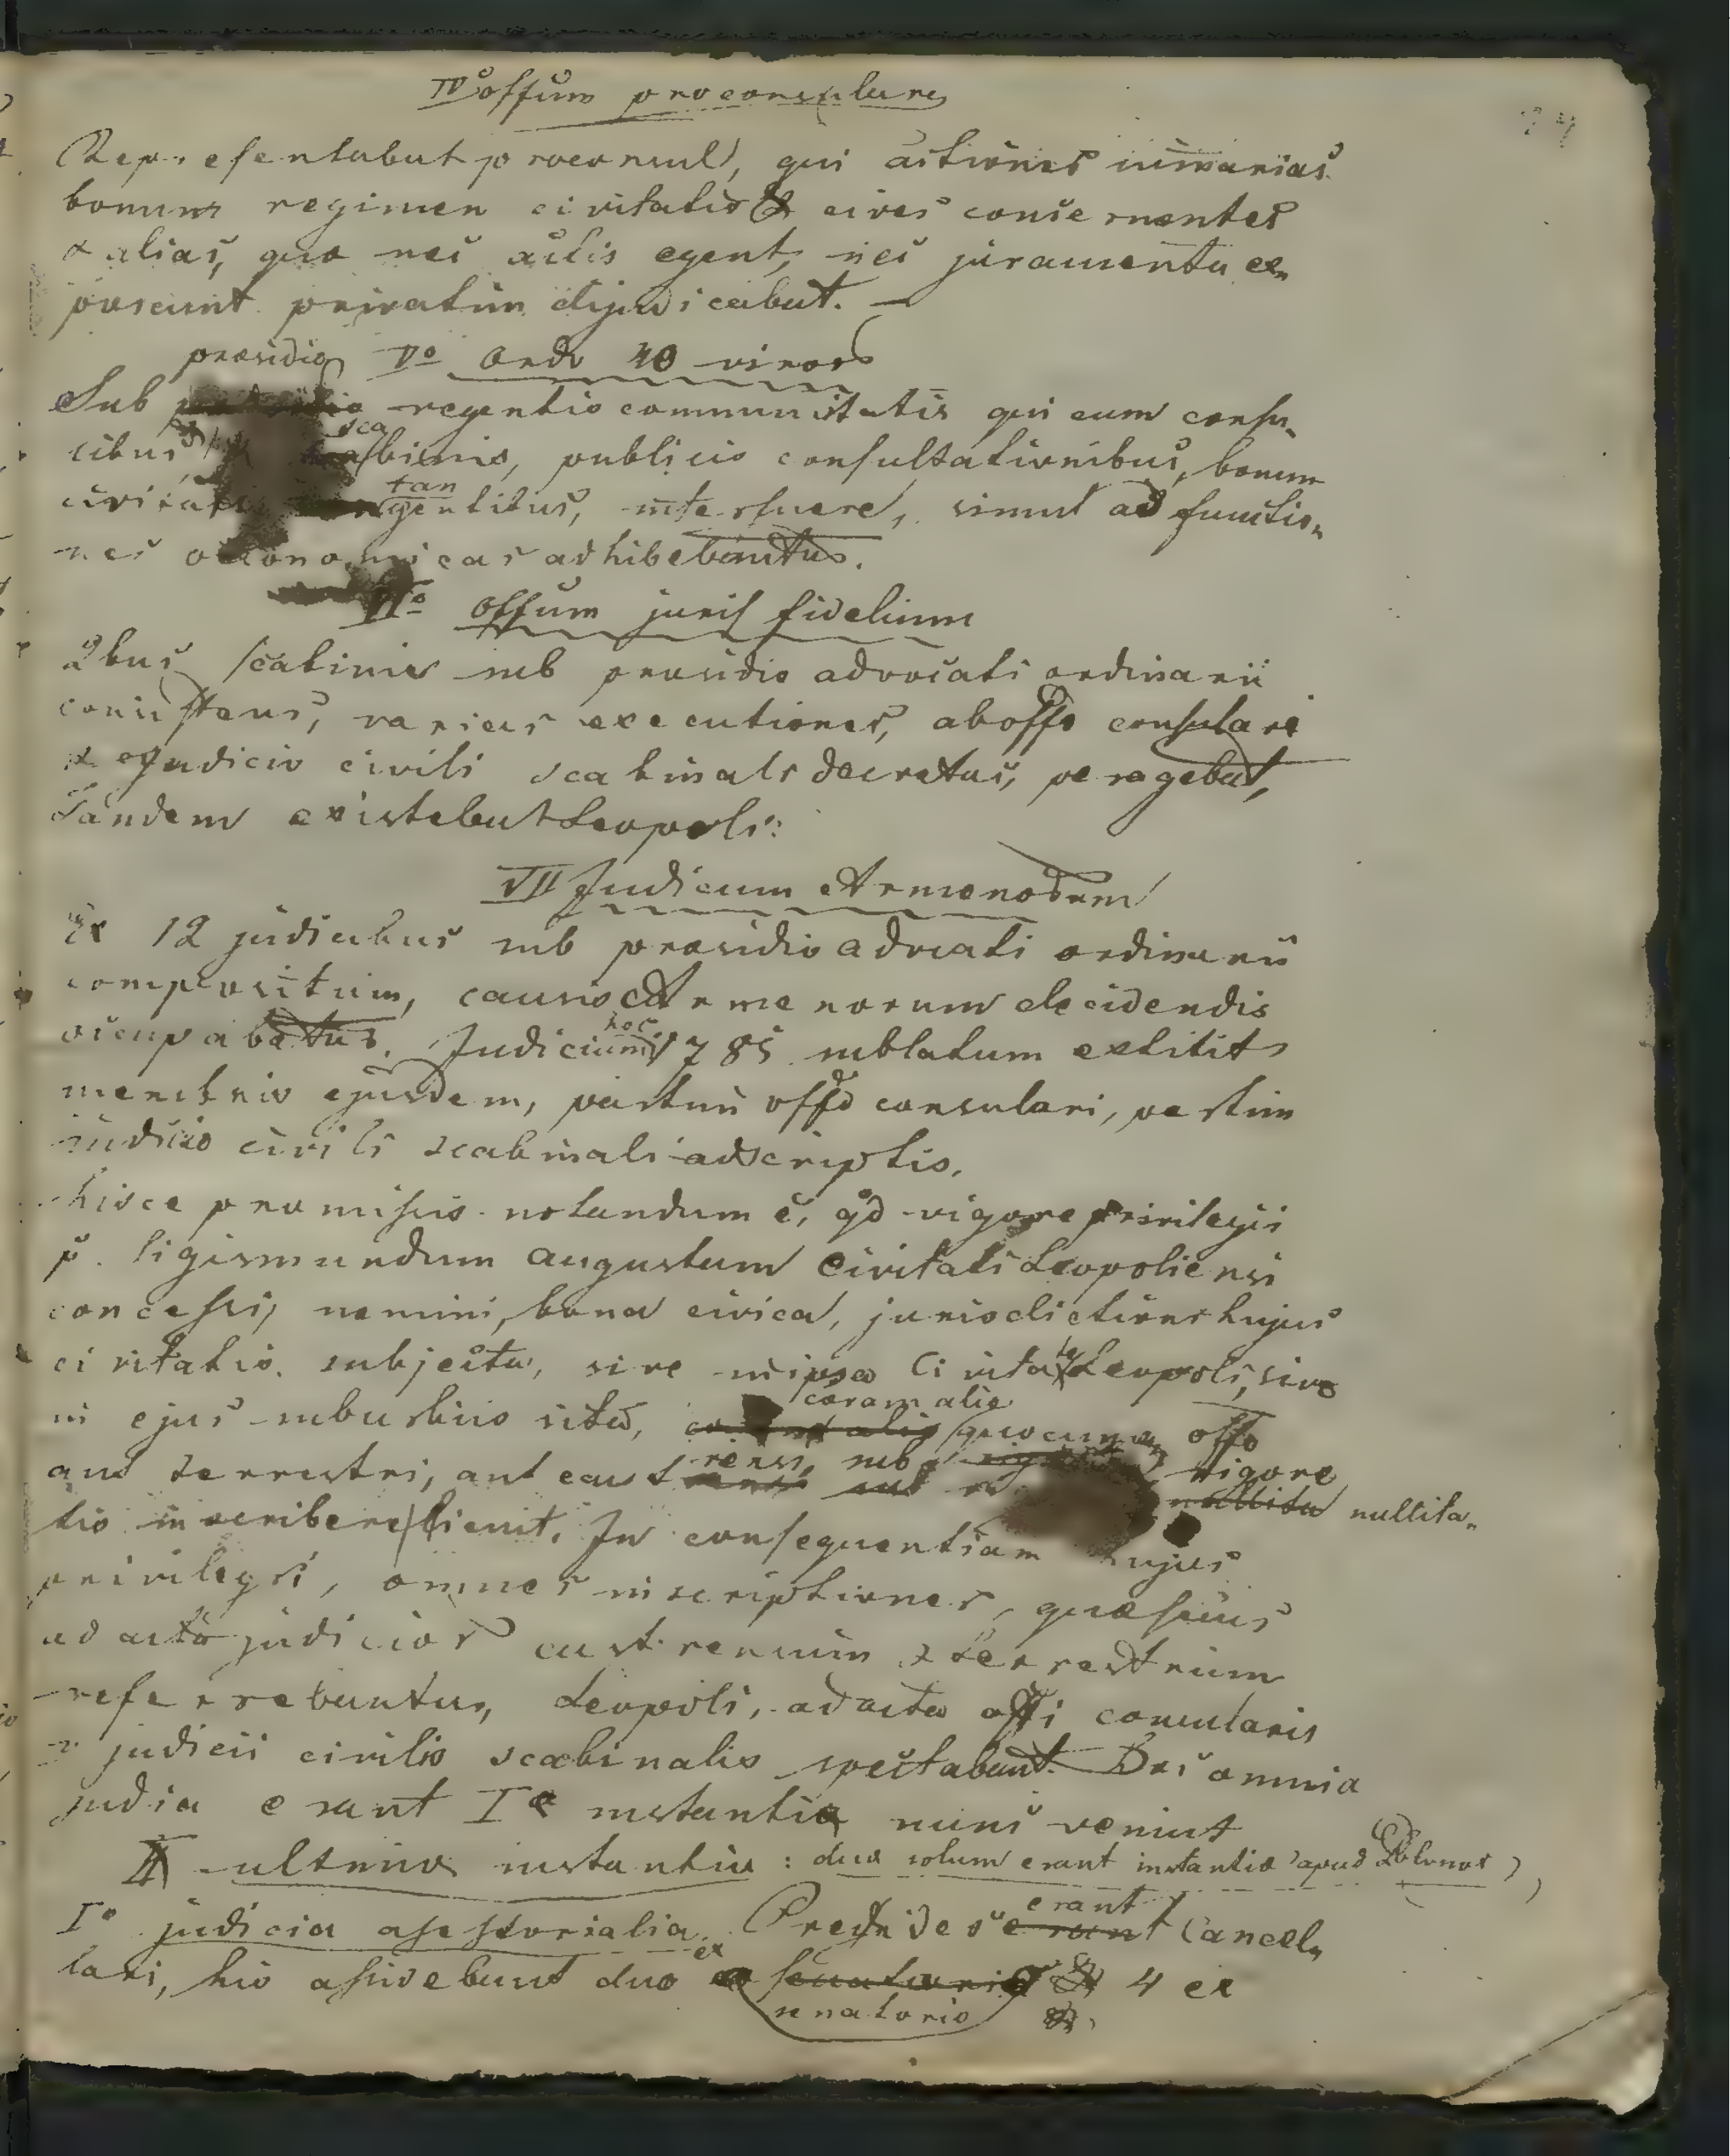 IVo offūm proconsulare
Repræsentabat proconsul, qui actiones iniurarias
bonum regimen civitatis & cives concernentes
& alias, quæ nec actis egent, nec juramenta ex„
poscunt privatim dijudicabat. —
Vo Ordo 40 viror
præsidio
Sub regentis communitatis qui cum consu„
sca
libus, binis, publicis consultationibus, bonum
tan
civitatis gentibus, interfuere, simul ad functio„
nes oeconomicas adhibebantur.
VIo Offūm juris fidelium
2bus scabinis sub præsidio advocati ordinarii
consistens, varias executiones, ab offo consulari
& ex judicio civili scabinali decretas, peragebat,
Tandem existebat Leopoli:
VII Judicum Armenorum
Ex 12 judicibus sub præsidio advocati ordinarii
compositum, causis Armenorum decidendis
hoc
occupabatur. Judicium 1785 sublatum extitit
membris ejusdem, partim offo consulari, partim
judicio civili scabinali adscriptis.
hisce præmissis notandum ē, qd vigore privilegii
p. Sigismundum augustum Civitati Leopoliensi
concessi, nemini, bona civica, jurisdictioni hujus
civitatis subjecta, sive in ipsa Civitate Leopoli, sive
coram alio
in ejus suburbiis sita, quocumq offo
aut terrestri, aut castrensi, sub rigore
nullita nullita„
tis inscribere licuit. In consequentiam hujus
privilegii, omnes inscriptiones, quæ secus
ad acta judicior castrensium & terrestrium
referrebantur, Leopoli, ad acta offi consularis
& judicii civilis scabinalis spectabant. Hæc omnia
judia erant Iæ instantiæ nunc veniut
II ultima instantia : duæ solum erant instantiæ apud Polonos
erant
Io judicia assessorialia. Præsides erant Cancel„
ex
lari, his assidebant duo senatorio 4 ex
senatorio